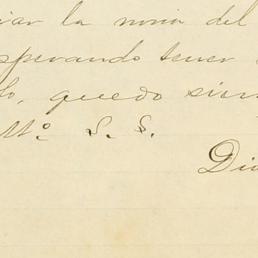 iar la noria del
sperando tener
lo, quedo siem
Mº. S. S.
Die